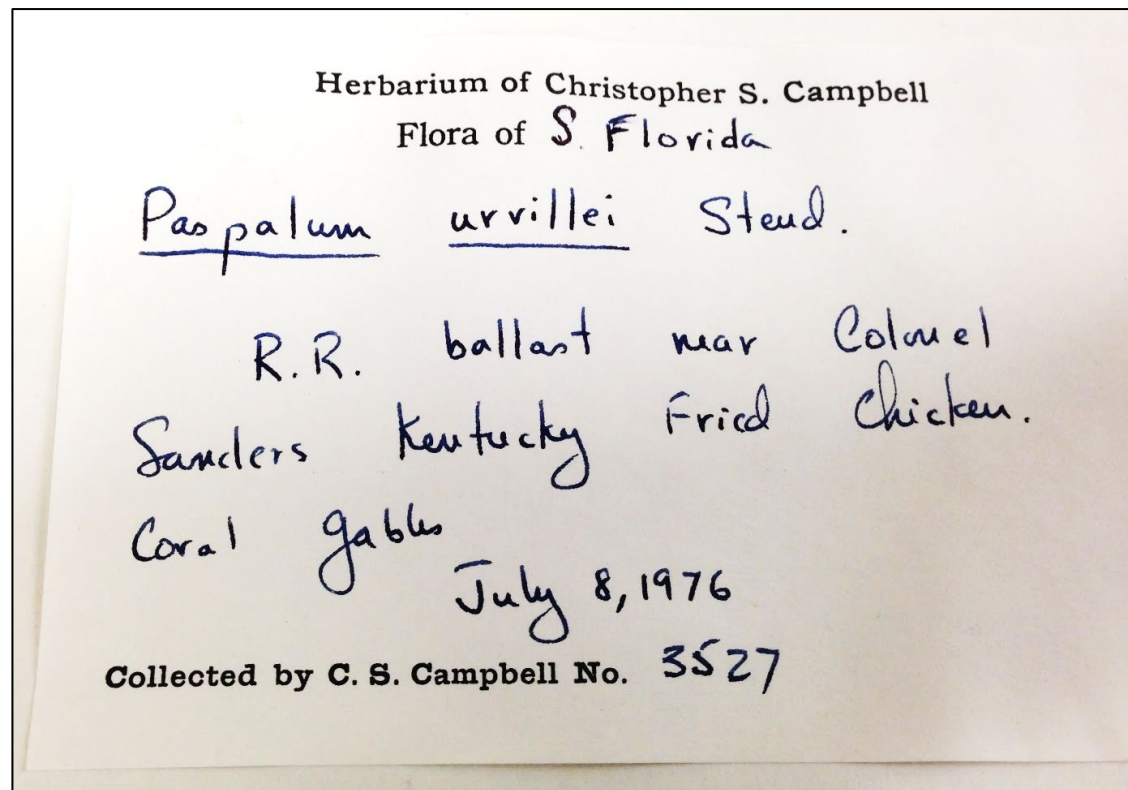 Herbarium of Christopher S. Campbell
Flora of S. Florida
Paspalum urvillei Steud.
R.R. ballast near Colonel
Sanders Kentucky Fried Chicken.
Coral Gables
July 8, 1976
Collected by C. S. Campbell No. 3527